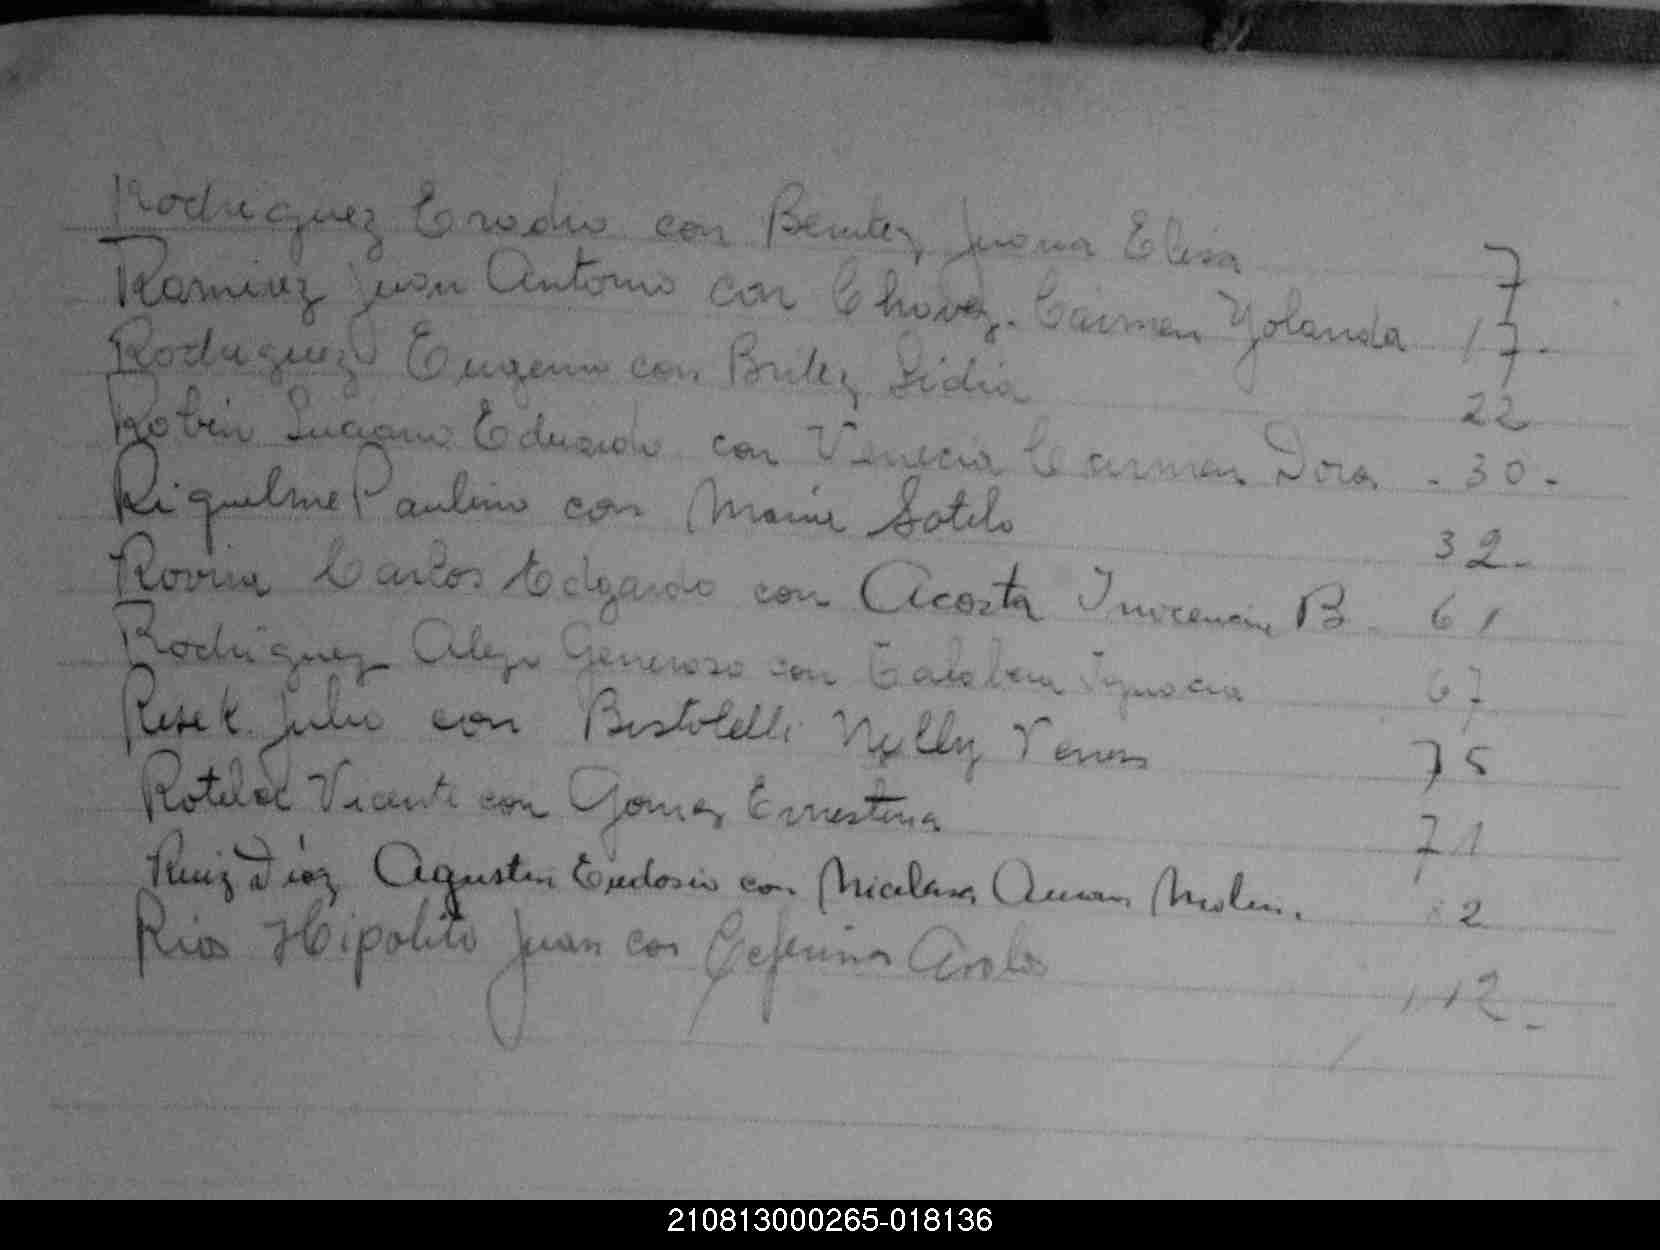 Rodriguez Erodio con Benitez Juana Elisa 7
Ramirez Juan Antonio con Chavez. Carmen Yolanda 17.
Rodriguez Eugenio con Britez Lidia 22
Robin Luciano Eduardo con Venecia Carmen Dora - 30 -
Riquelme Paulino con Maria Sotelo 32.
Rovira Carlos Edgardo con Acosta Inocencia B. 61
Rodriguez Alejo Generoso con Ignacia 67
Resek Julio con Nelly 75
Vicente con Gomez Ernestina 71
Ruiz Diaz Agustin Eudosio con Nicolasa 2
Rios Hipolito Juan con Ceferina Avalos 112.
210813000265-018136